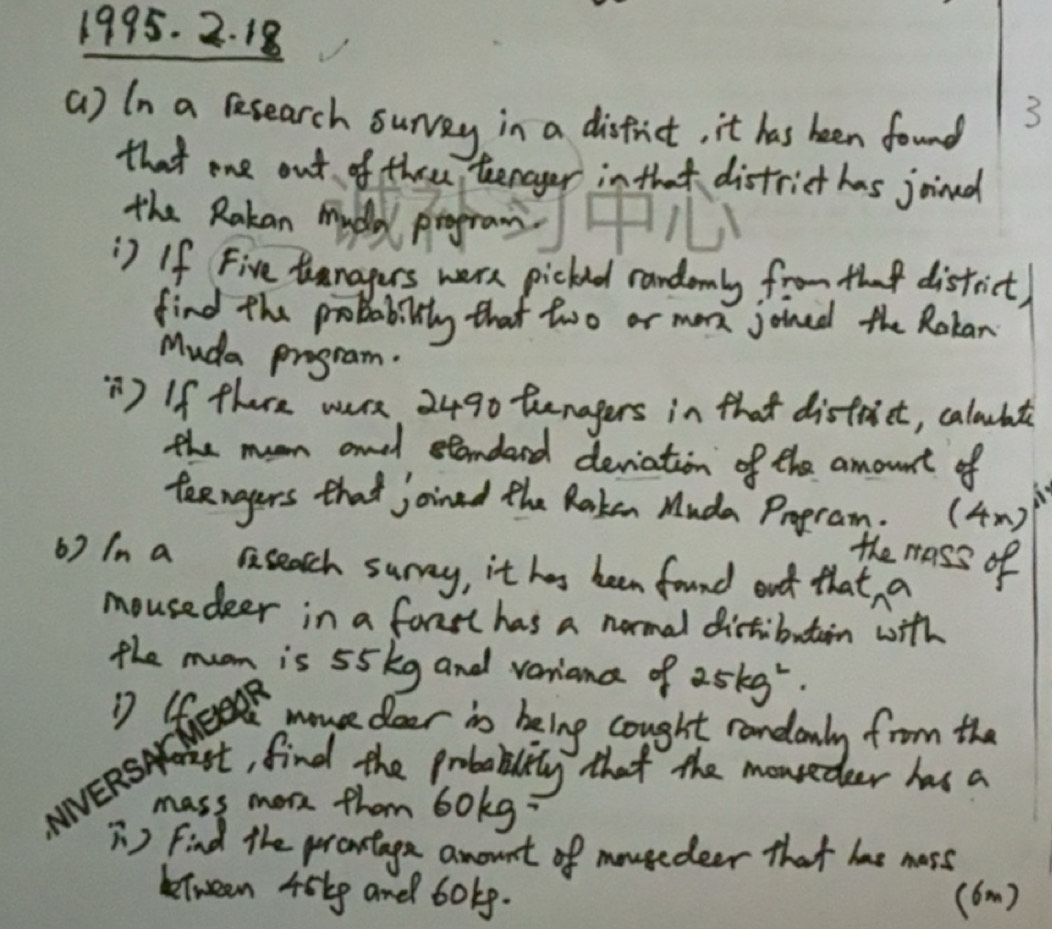 1995.2.18
3
a) In a research survey in a district, it has been found
that one out of three teenager in that district has joined
the Rakan Muda program.
诚补习中心
i) If Five teenagers were picked randomly from that district,
find the probability that two or more joined the Rakan
Muda program.
ii) If there were 2490 teenagers in that district, calculate
the mean and standard deviation of the amount of
teenagers that joined the Rakan Muda Program. (4m)
b) In a research survey, it has been found out that ^ the mass of a
mousedeer in a forest has a normal distribution with
the mean is 55kg and variance of 25kg².
i) If mousedeer is being cought randomly from the
forest, find the probability that the mousedeer has a
NIVERSAL MEJAR
mass more than 60kg.
ii) Find the precentage amount of mousedeer that has mass
between 45kg and 60kg. (6m)